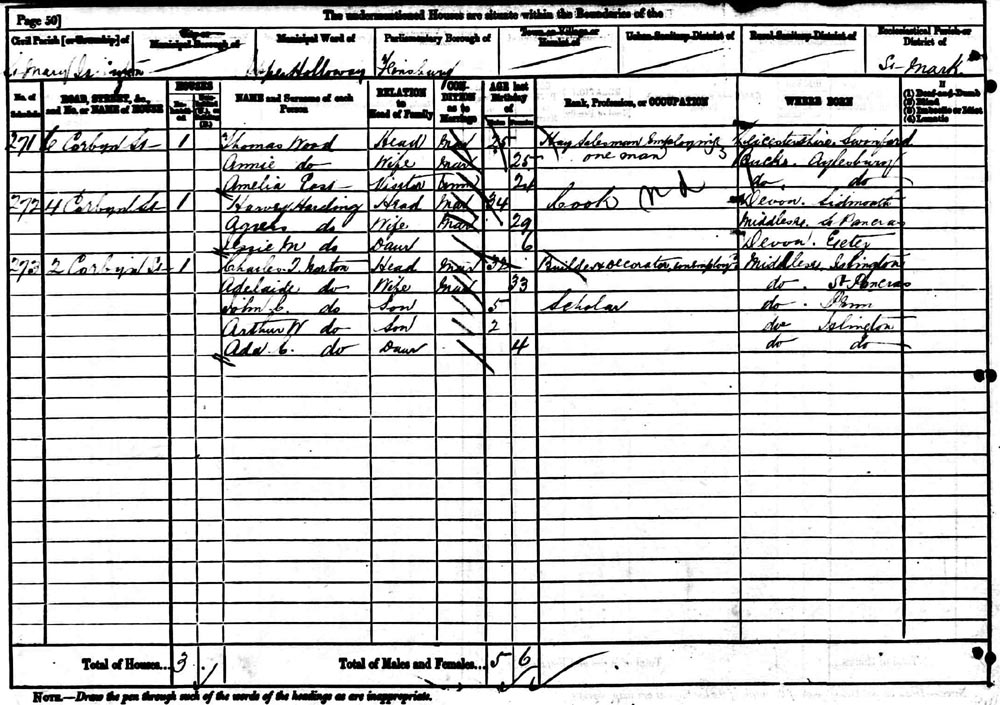 Page 50]
The undermentioned Houses are situate within the Boundaries of the
Civil Parish [or Township] of
City or Municipal Borough of
Municipal Ward of
Parliamentary Borough of
Town or Village or Hamlet of
Urban Sanitary District of
Rural Sanitary District of
Ecclesiastical Parish or District of
St Mary Islington
Upper Holloway
Finsbury
St Mark
No. of Schedule
ROAD, STREET, &c., and No. or NAME of HOUSE
HOUSES
NAME and Surname of each Person
RELATION to Head of Family
CONDITION as to Marriage
AGE last Birthday of
Males
Females
Rank, Profession, or OCCUPATION
WHERE BORN
If
(1) Deaf-and-Dumb
(2) Blind
(3) Imbecile or Idiot
(4) Lunatic
271 6 Corbyn St 1 Thomas Wood Head Mar 25 Hay Salesman Employing Leicestershire Swinford
Annie do Wife Mar 25 one man 3 Bucks. Aylesbury
Amelia East Visitor Unm 24 do do
272 4 Corbyn St 1 Harvey Harding Head Mar 34 Cook Nd Devon. Sidmouth
Agness do Wife Mar 29 Middlesx. St Pancras
Jessie M do Daur 6 Devon. Exeter
273 2 Corbyn St 1 Charles T. Norton Head Mar 32 Builder & Decorator Middlesx Islington
Adelaide do Wife Mar 33 do. St Pancras
John C. do Son 5 Scholar do.
Arthur W do Son 2 do Islington
Ada C. do Daur 4 do do
Total of Houses... 3
Total of Males and Females... 5 6
NOTE.—Draw the pen through such of the words of the headings as are inappropriate.